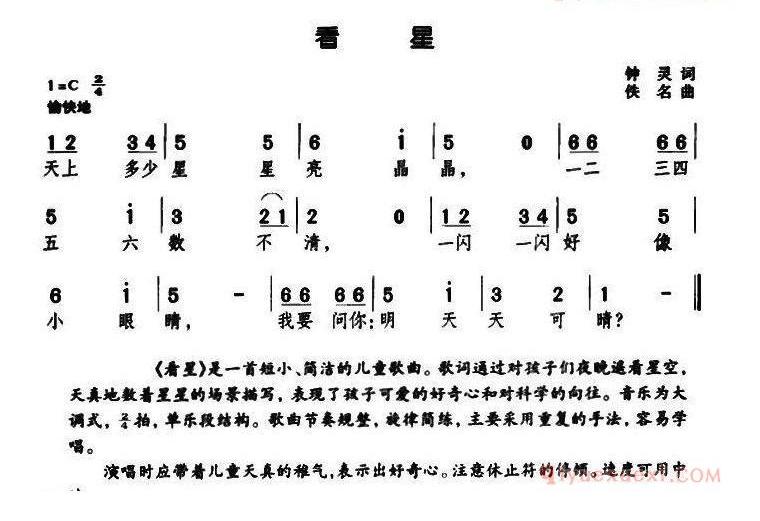 看 星
1=C 2/4
钟 灵 词
愉快地
佚 名 曲
1 2 3 4 | 5 5 | 6 i | 5 0 | 6 6 6 6 |
天上 多少 星 星 亮 晶 晶, 一二 三四
5 i | 3 2 1 | 2 0 | 1 2 3 4 | 5 5 |
五 六 数 不 清, 一闪 一闪 好 像
6 i | 5 - | 6 6 6 6 | 5 i | 3 2 | 1 - ‖
小 眼 睛, 我要 问你:明 天 天 可 晴?
《看星》是一首短小、简洁的儿童歌曲。歌词通过对孩子们夜晚遥看星空,
天真地数着星星的场景描写,表现了孩子可爱的好奇心和对科学的向往。音乐为大
调式,2/4拍,单乐段结构。歌曲节奏规整,旋律简练,主要采用重复的手法,容易学
唱。
演唱时应带着儿童天真的稚气,表示出好奇心。注意休止符的停顿。速度可用中